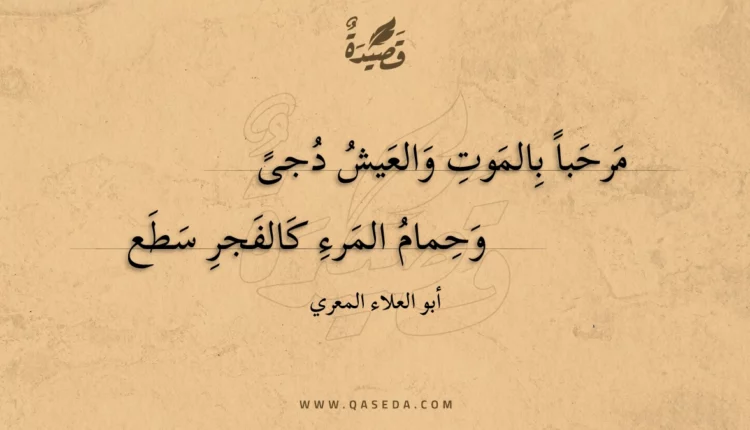 قَصِيدَةٌ
مَرحَباً بِالمَوتِ وَالعَيشُ دُجىً
وَحِمامُ المَرءِ كَالفَجرِ سَطَع
أبو العلاء المعري
WWW.QASEDA.COM